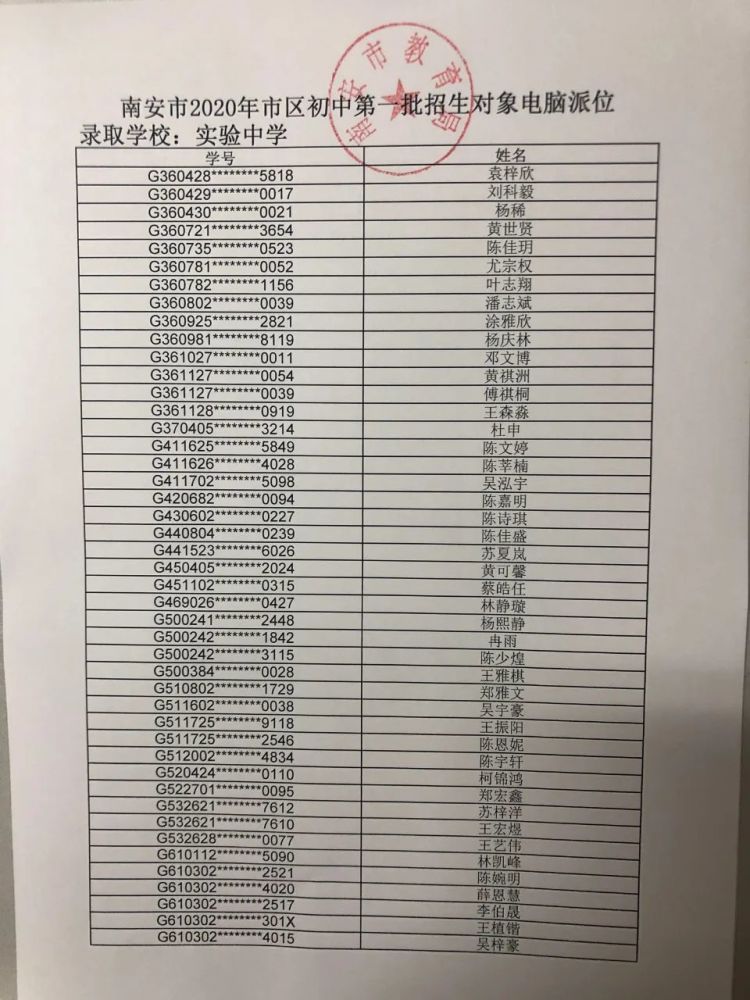 南安市教育局
南安市2020年市区初中第一批招生对象电脑派位
录取学校：实验中学
学号 姓名
G360428********5818 袁梓欣
G360429********0017 刘科毅
G360430********0021 杨稀
G360721********3654 黄世贤
G360735********0523 陈佳玥
G360781********0052 尤宗权
G360782********1156 叶志翔
G360802********0039 潘志斌
G360925********2821 涂雅欣
G360981********8119 杨庆林
G361027********0011 邓文博
G361127********0054 黄祺洲
G361127********0039 傅祺桐
G361128********0919 王森淼
G370405********3214 杜申
G411625********5849 陈文婷
G411626********4028 陈莘楠
G411702********5098 吴泓宇
G420682********0094 陈嘉明
G430602********0227 陈诗琪
G440804********0239 陈佳盛
G441523********6026 苏夏岚
G450405********2024 黄可馨
G451102********0315 蔡皓任
G469026********0427 林静璇
G500241********2448 杨熙静
G500242********1842 冉雨
G500242********3115 陈少煌
G500384********0028 王雅棋
G510802********1729 郑雅文
G511602********0038 吴宇豪
G511725********9118 王振阳
G511725********2546 陈恩妮
G512002********4834 陈宇轩
G520424********0110 柯锦鸿
G522701********0095 郑宏鑫
G532621********7612 苏梓洋
G532621********7610 王宏煜
G532628********0077 王艺伟
G610112********5090 林凯峰
G610302********2521 陈婉明
G610302********4020 薛恩慧
G610302********2517 李伯晟
G610302********301X 王植锴
G610302********4015 吴梓豪